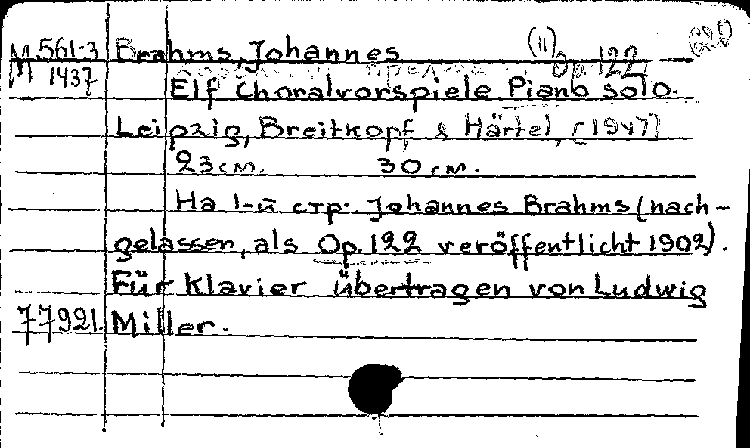 М 561-3 Brahms, Johannes (11) Op 122
М 1437 Elf Choralvorspiele Piano solo.
Leipzig, Breitkopf & Härtel, [1947]
23 см. 30 см.
На 1-й стр. Johannes Brahms (nach-
gelassen, als Op. 122 veröffentlicht 1902).
Für Klavier übertragen von Ludwig
77921. Miller.